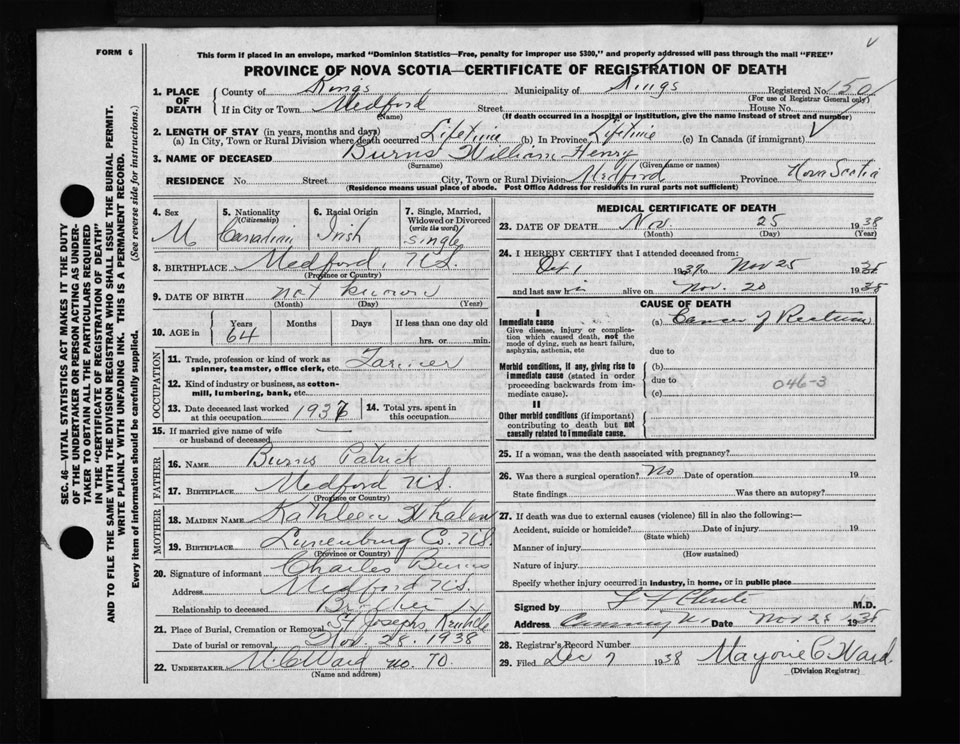 FORM 6
This form if placed in an envelope, marked "Dominion Statistics—Free, penalty for improper use $300," and properly addressed will pass through the mail "FREE"
PROVINCE OF NOVA SCOTIA—CERTIFICATE OF REGISTRATION OF DEATH
1. PLACE OF DEATH County of Kings Municipality of Kings Registered No. 150
(For use of Registrar General only)
If in City or Town Medford Street House No.
(Name) (If death occurred in a hospital or institution, give the name instead of street and number)
2. LENGTH OF STAY (in years, months and days)
(a) In City, Town or Rural Division where death occurred Lifetime (b) In Province Lifetime (c) In Canada (if immigrant)
3. NAME OF DECEASED Burns William Henry
(Surname) (Given name or names)
RESIDENCE No. Street City, Town or Rural Division Medford Province Nova Scotia
(Residence means usual place of abode. Post Office Address for residents in rural parts not sufficient)
SEC. 46—VITAL STATISTICS ACT MAKES IT THE DUTY
OF THE UNDERTAKER OR PERSON ACTING AS UNDER-
TAKER TO OBTAIN ALL THE PARTICULARS REQUIRED
IN THE "CERTIFICATE OF REGISTRATION OF DEATH"
AND TO FILE THE SAME WITH THE DIVISION REGISTRAR WHO SHALL ISSUE THE BURIAL PERMIT.
WRITE PLAINLY WITH UNFADING INK. THIS IS A PERMANENT RECORD.
Every item of information should be carefully supplied. (See reverse side for instructions.)
4. Sex M
5. Nationality (Citizenship) Canadian
6. Racial Origin Irish
7. Single, Married, Widowed or Divorced (write the word) single
8. BIRTHPLACE Medford, N.S.
(Province or Country)
9. DATE OF BIRTH not known
(Month) (Day) (Year)
10. AGE in Years 64 Months Days If less than one day old
hrs. or min.
OCCUPATION
11. Trade, profession or kind of work as spinner, teamster, office clerk, etc. Farmer
12. Kind of industry or business, as cotton-mill, lumbering, bank, etc.
13. Date deceased last worked at this occupation 1937
14. Total yrs. spent in this occupation
15. If married give name of wife or husband of deceased —
FATHER
16. NAME Burns Patrick
17. BIRTHPLACE Medford N.S.
(Province or Country)
MOTHER
18. MAIDEN NAME Kathleen Whalen
19. BIRTHPLACE Lunenburg Co. N.S.
(Province or Country)
20. Signature of informant Charles Burns
Address Medford N.S.
Relationship to deceased Brother
21. Place of Burial, Cremation or Removal St Josephs Kentville
Date of burial or removal Nov. 28. 1938
22. UNDERTAKER M.C. Ward no. 70.
(Name and address)
MEDICAL CERTIFICATE OF DEATH
23. DATE OF DEATH Nov. 25 1938
(Month) (Day) (Year)
24. I HEREBY CERTIFY that I attended deceased from:
Oct 1 1937 to Nov 25 1938
and last saw him alive on Nov. 20 1938
CAUSE OF DEATH
I
Immediate cause
Give disease, injury or complication which caused death, not the mode of dying, such as heart failure, asphyxia, asthenia, etc
(a) Cancer of Rectum
due to
Morbid conditions, if any, giving rise to immediate cause (stated in order proceeding backwards from immediate cause).
(b)
due to
(c)
046-3
II
Other morbid conditions (if important) contributing to death but not causally related to immediate cause.
25. If a woman, was the death associated with pregnancy?
26. Was there a surgical operation? No Date of operation 19
State findings Was there an autopsy?
27. If death was due to external causes (violence) fill in also the following:—
Accident, suicide or homicide? Date of injury 19
(State which)
Manner of injury
(How sustained)
Nature of injury
Specify whether injury occurred in industry, in home, or in public place
Signed by M.D.
Address Canning N.S. Date Nov 28 1938
28. Registrar's Record Number
29. Filed Dec 7 1938 Marjorie C. Ward
(Division Registrar)